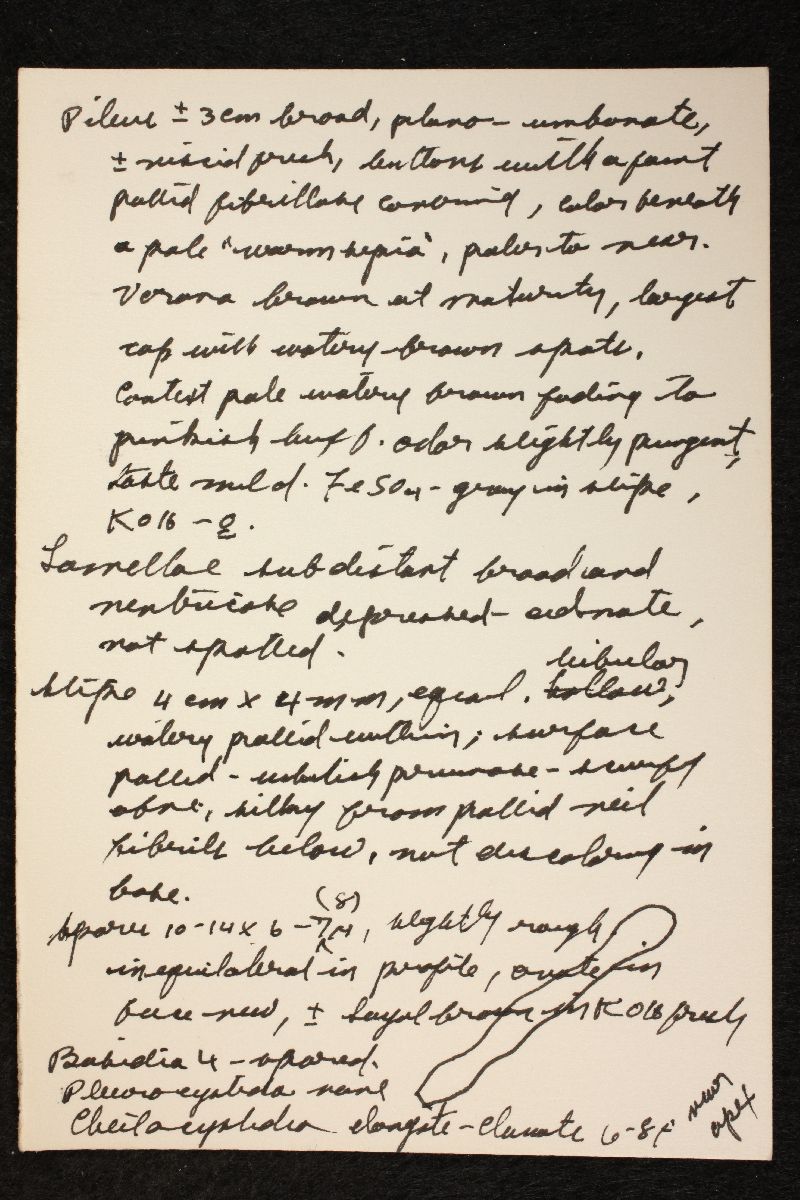 Pileus ± 3 cm broad, plano-umbonate,
± viscid fresh, buttons with a faint
pallid fibrillose covering, color beneath
a pale "warm sepia", paler to near
Verona brown at maturity, largest
cap with watery brown spots.
Context pale watery brown fading to
pinkish buff. odor slightly pungent,
taste mild. FeSO4 - gray in stipe,
KOH - 0.
Lamellae subdistant broad and
ventricose depressed-adnate,
not spotted.
tubular
Stipe 4 cm x 4 mm, equal. hollow,
watery pallid within; surface
pallid - whitish pruinose-scurfy
above, silky from pallid veil
fibrils below, not discoloring in
base.
(8)
Spores 10-14 x 6-7 μ, slightly rough
inequilateral in profile, ovate in
face view, ± sayal brown in KOH fresh
Basidia 4-spored.
Pleurocystidia none
Cheilocystidia elongate-clavate 6-8 μ near
apex